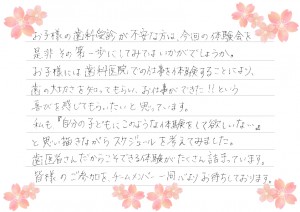 お子様の歯科受診が不安な方は、今回の体験会を
是非その第一歩にしてみてはいかがでしょうか。
お子様には歯科医院でのお仕事を体験することにより、
歯の大切さを知ってもらい、お仕事ができた!!という
喜びを感じてもらいたいと思っています。
私も『自分の子どもにこのような体験をして欲しいな。』
と思い描きながらスケジュールを考えてみました。
歯医者さんだからこそできる体験がたくさん詰まっています。
皆様のご参加を、チームメンバー一同心よりお待ちしております。